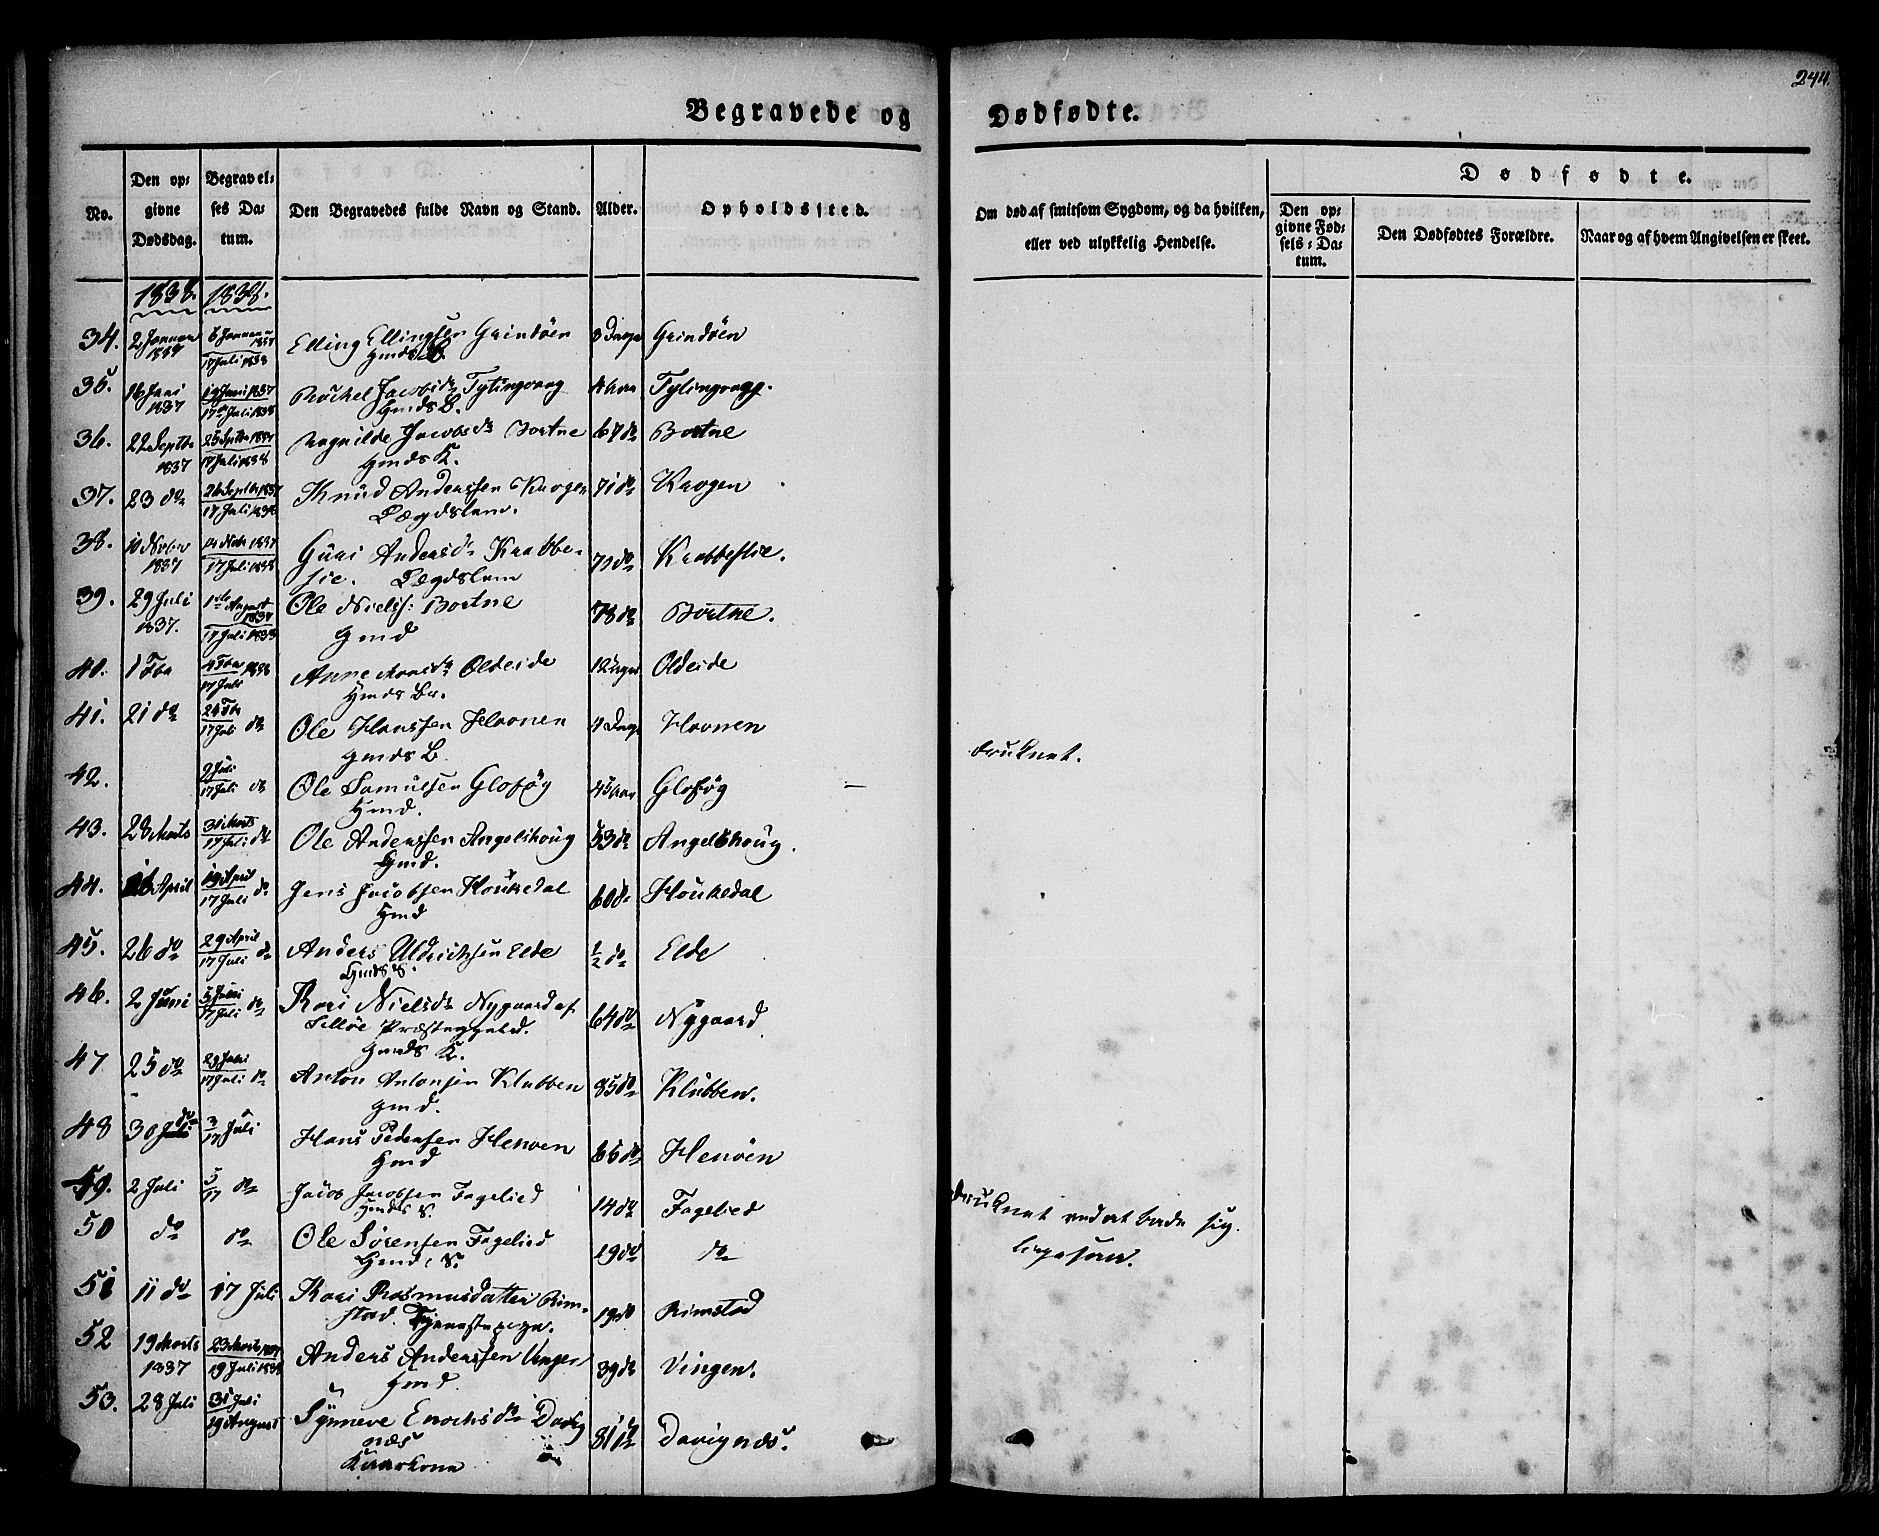 244.
Begravede og Dødfødte.
No.
Den op-
givne
Dødsdag.
Begravel-
ses Da-
tum.
Den Begravedes fulde Navn og Stand.
Alder.
Opholdssted.
Om død af smitsom Sygdom, og da hvilken,
eller ved ulykkelig Hendelse.
Dødfødte.
Den op-
givne Fød-
sels-Da-
tum.
Den Dødfødtes Forældre.
Naar og af hvem Angivelsen er skeet.
1838. 1838.
34. 2 Januar 1838 6 Januar 17 Juli 1838 Elling Ellingsen Grindøen 8 Dage Grindøen
Gmds B.
35. 16 Juni 1837 19 Juni 1837 17de Juli 1838 Rachel Jacobsdr Tytingvaag 4 Aar Tytingvaag.
Gmds B.
36. 22 Septbr 1837 25 Septbr 1837 17 Juli 1838 Ragnilde Jacobsdr Bortne 67 do Bortne
Gmds K.
37. 23 do 26 Septbr 1837 17 Juli 1838 Knud Anderssen Krogen 71 do Krogen
Lægdslem.
38. 10 Novbr 1837 14 Novbr 1837 17 Juli 1838 Guri Andersdr Krabbe- 70 do Krabbestie.
stie. Lægdslem
39. 29 Juli 1837. 1ste August 1837 17 Juli 1838 Ole Niels: Bortne 78 do Bortne.
Gmd
40. 1 Fbr 4 Fbr 1838 17 Juli Anne Monsdr Oldeide 12 Dage Oldeide
Gmds Br.
41. 21 do 24 Fbr 17 Juli do Ole Hanssen Havnen 4 Dage Havnen
Gmds B.
42. 2 Juli 17 Juli do Ole Samuelsen Gloføg 45 Aar Gloføg druknet.
Gmd.
43. 28 Marts 31 Marts 17 Juli do Ole Anderssen Angelshoug 53 do Angelshoug.
Gmd.
44. 16 April 19 April 17 Juli do Jens Jacobsen Houkedal 60 do Houkedal
Gmd
45. 26 do 29 April 17 Juli do Anders Uldrichsen Elde ½ do Elde
Gmds S.
46. 2 Juni 5 Juni 17 Juli do Kari Nielsdr Nygaard af 64 do Nygaard
Selløe Præstegield.
Gmds K.
47 25 do 29 Juni 17 Juli do Anton Antonsen Klubben 85 do Klubben.
Gmd.
48 30 do 3 17 Juli Hans Pedersen Henøen 66 do Henøen
Gmd
49. 2 Juli 5 17 do Jacob Jacobsen Fagelied 14 do Fagelied druknet ved at bade sig.
Gmds S.
50 do do Ole Sørensen Fagelied 19 do do ligesaa.
Gmd: S.
51 11 do 17 Juli Kari Rasmusdatter Rim- 19 do Rimstad
stad. Tjenestepige.
52 19 Marts 1837 23 Marts 1837 19 Juli 1838 Anders Anderssen Vingen 39 do Vingen.
Gmd.
53. 28 Juli 31 Juli 19 August Synneve Enochsdr Davig 81 ½ Davignæs.
næs
Kaarkone